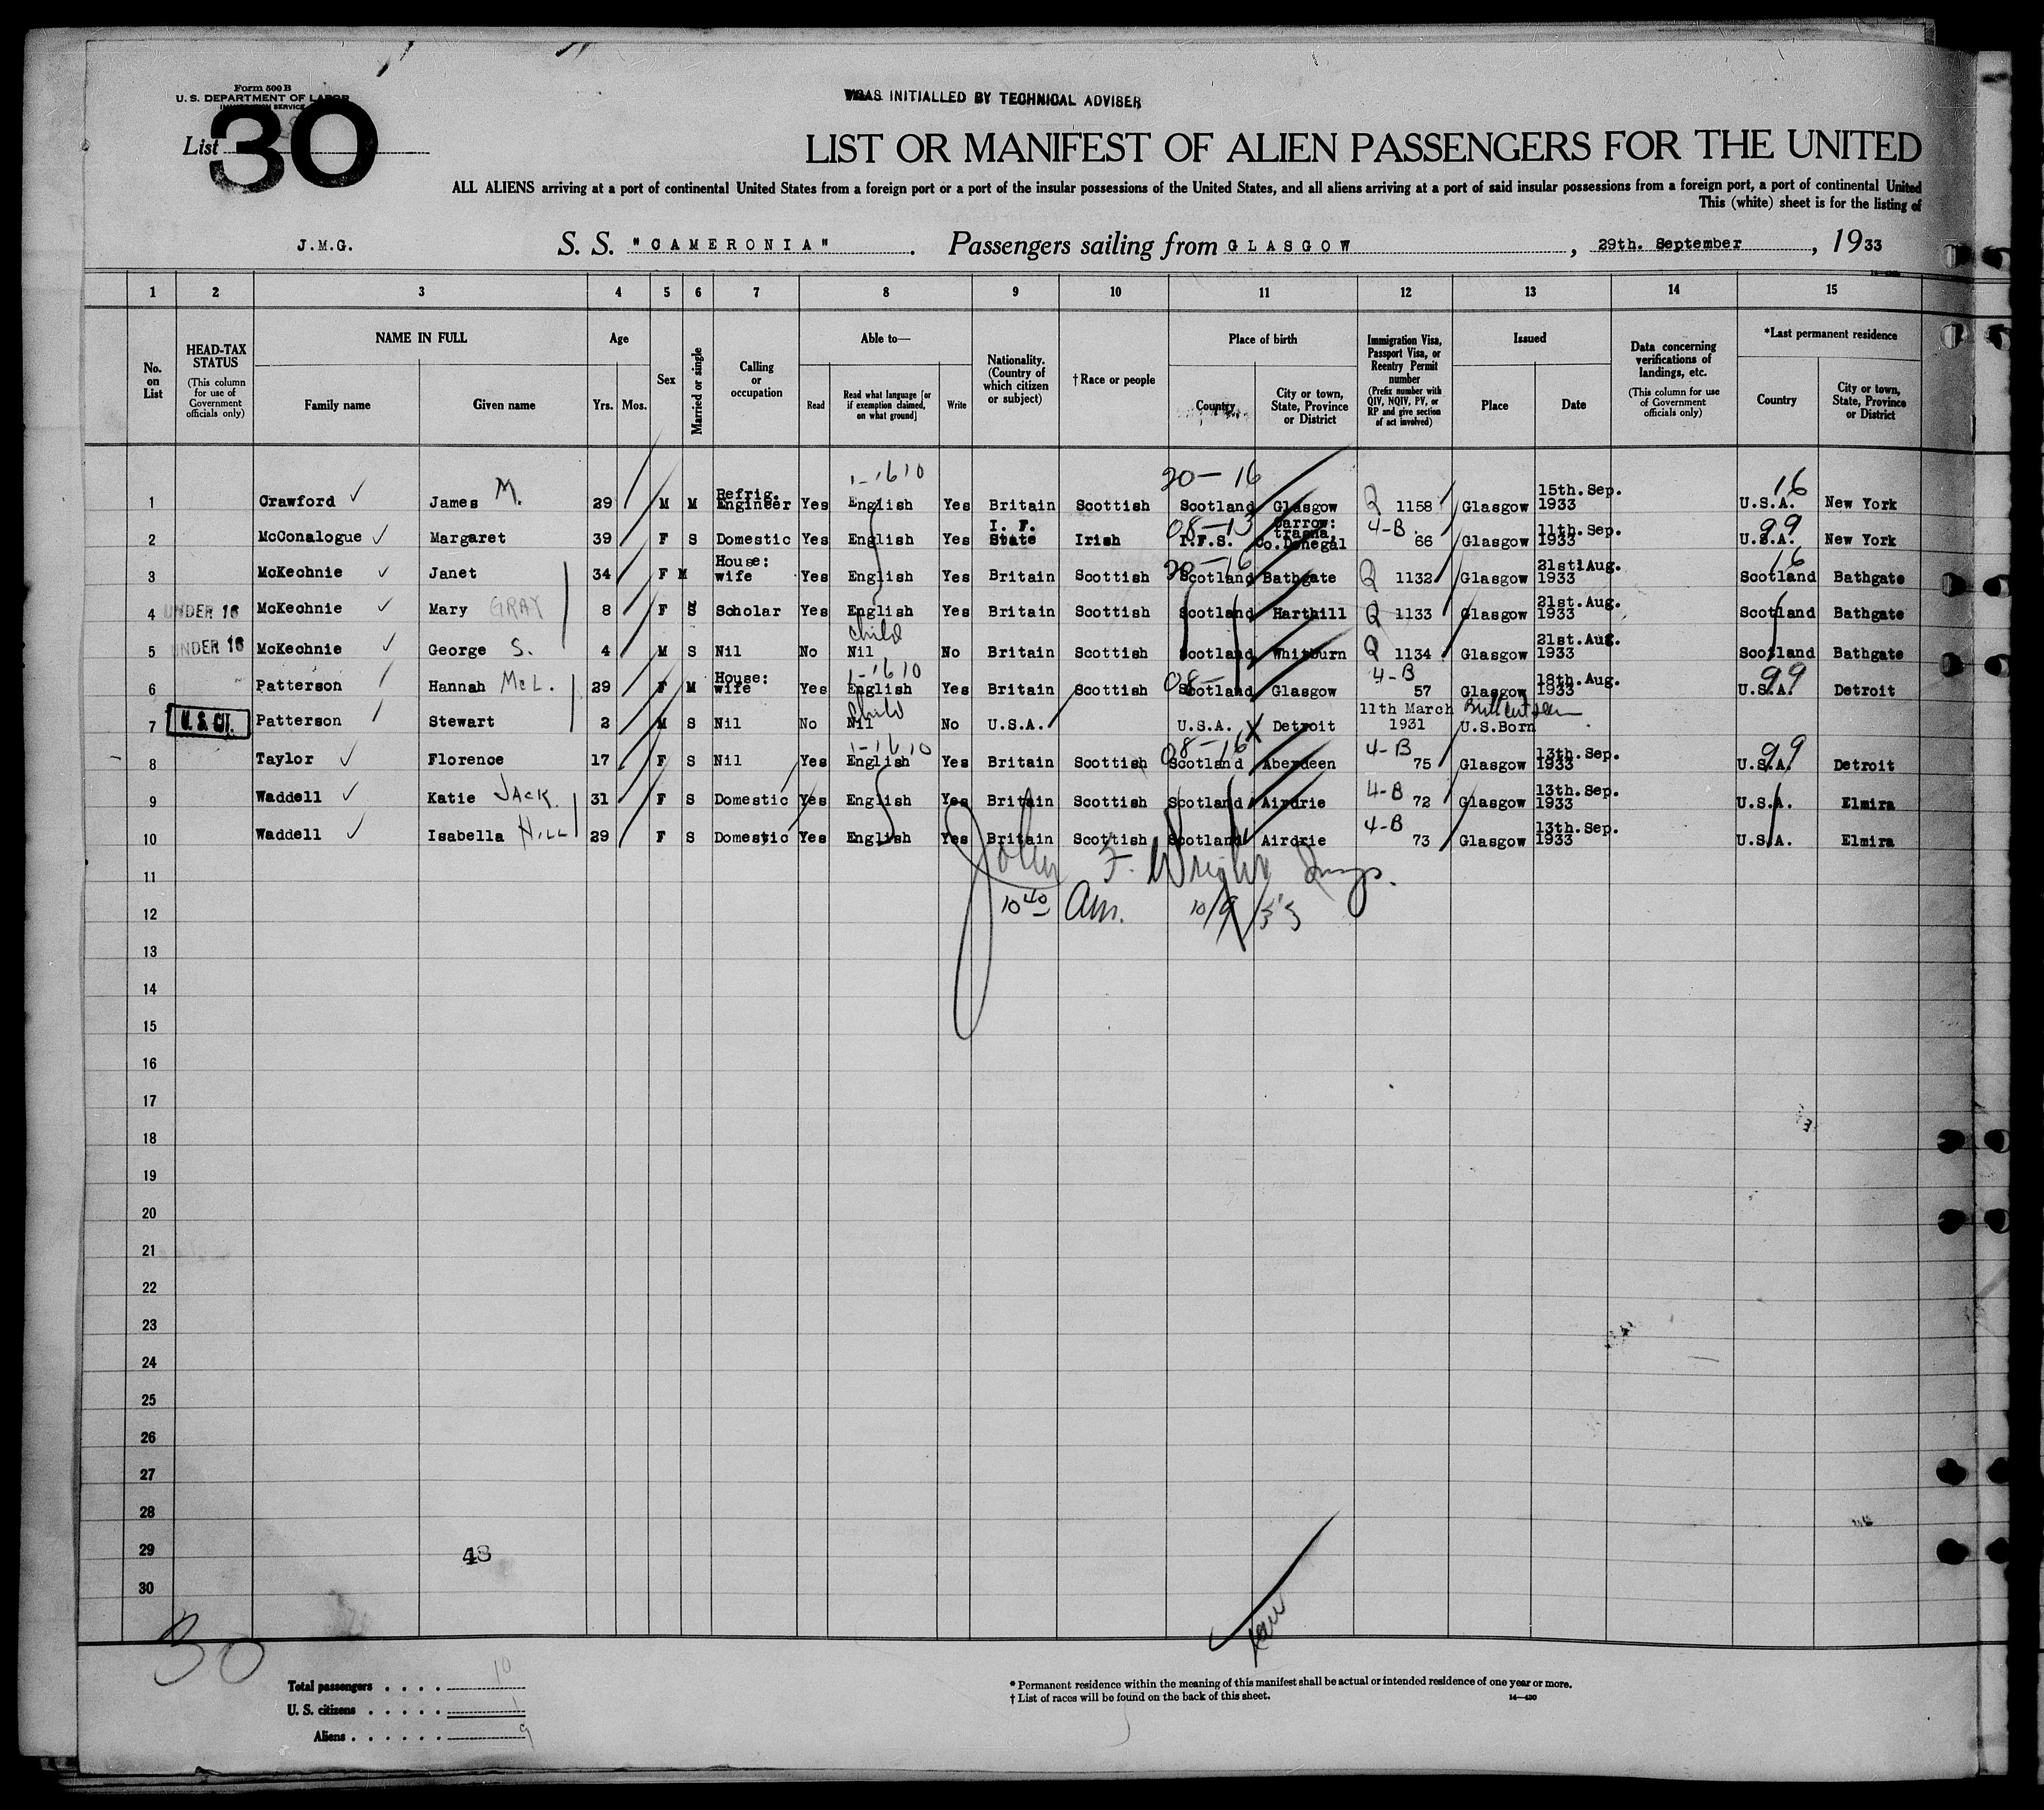 Form 500 B
U. S. DEPARTMENT OF LABOR
IMMIGRATION SERVICE
List 30
VISAS INITIALLED BY TECHNICAL ADVISER
LIST OR MANIFEST OF ALIEN PASSENGERS FOR THE UNITED
ALL ALIENS arriving at a port of continental United States from a foreign port or a port of the insular possessions of the United States, and all aliens arriving at a port of said insular possessions from a foreign port, a port of continental United
This (white) sheet is for the listing of
J.M.G. S. S. "CAMERONIA". Passengers sailing from GLASGOW, 29th. September, 1933
1 2 3 4 5 6 7 8 9 10 11 12 13 14 15
No. on List
HEAD-TAX STATUS (This column for use of Government officials only)
NAME IN FULL Family name Given name
Age Yrs. Mos.
Sex
Married or single
Calling or occupation
Able to— Read Read what language [or if exemption claimed, on what ground] Write
Nationality. (Country of which citizen or subject)
†Race or people
Place of birth Country City or town, State, Province or District
Immigration Visa, Passport Visa, or Reentry Permit number (Prefix number with QIV, NQIV, PV, or RP and give section of act involved)
Issued Place Date
Data concerning verifications of landings, etc. (This column for use of Government officials only)
*Last permanent residence Country City or town, State, Province or District
1-1610 20-16 16
1 Crawford ✓ James M. 29 M M Refrig. Engineer Yes English Yes Britain Scottish Scotland Glasgow Q 1158 Glasgow 15th.Sep. 1933 U.S.A. New York
08-13 99
2 McConalogue ✓ Margaret 39 F S Domestic Yes English Yes I. F. State Irish I.F.S. Carrow: tragna, Co.Donegal 4-B 66 Glasgow 11th.Sep. 1933 U.S.A. New York
20-16 16
3 McKechnie ✓ Janet 34 F M House: wife Yes English Yes Britain Scottish Scotland Bathgate Q 1132 Glasgow 21st.Aug. 1933 Scotland Bathgate
4 UNDER 16 McKechnie ✓ Mary GRAY 8 F S Scholar Yes English Yes Britain Scottish Scotland Harthill Q 1133 Glasgow 21st.Aug. 1933 Scotland Bathgate
child
5 UNDER 16 McKechnie ✓ George S. 4 M S Nil No Nil No Britain Scottish Scotland Whitburn Q 1134 Glasgow 21st.Aug. 1933 Scotland Bathgate
1-1610 08- 99
6 Patterson Hannah McL. 29 F M House: wife Yes English Yes Britain Scottish Scotland Glasgow 4-B 57 Glasgow 18th.Aug. 1933 U.S.A. Detroit
child
7 U.S CIT. Patterson Stewart 2 M S Nil No Nil No U.S.A. U.S.A. X Detroit 11th March 1931 U.S.Born
1-1610 08-16 99
8 Taylor ✓ Florence 17 F S Nil Yes English Yes Britain Scottish Scotland Aberdeen 4-B 75 Glasgow 13th.Sep. 1933 U.S.A. Detroit
9 Waddell ✓ Katie JACK. 31 F S Domestic Yes English Yes Britain Scottish Scotland Airdrie 4-B 72 Glasgow 13th.Sep. 1933 U.S.A. Elmira
10 Waddell ✓ Isabella HILL 29 F S Domestic Yes English Yes Britain Scottish Scotland Airdrie 4-B 73 Glasgow 13th.Sep. 1933 U.S.A. Elmira
11 John F. Wright Insp.
12 10 40 Am. 10/9/33
13
14
15
16
17
18
19
20
21
22
23
24
25
26
27
28
29 48
30
30
Total passengers . . . . 10
U. S. citizens . . . . . 1
Aliens . . . . . . 9
* Permanent residence within the meaning of this manifest shall be actual or intended residence of one year or more.
† List of races will be found on the back of this sheet.
14—430